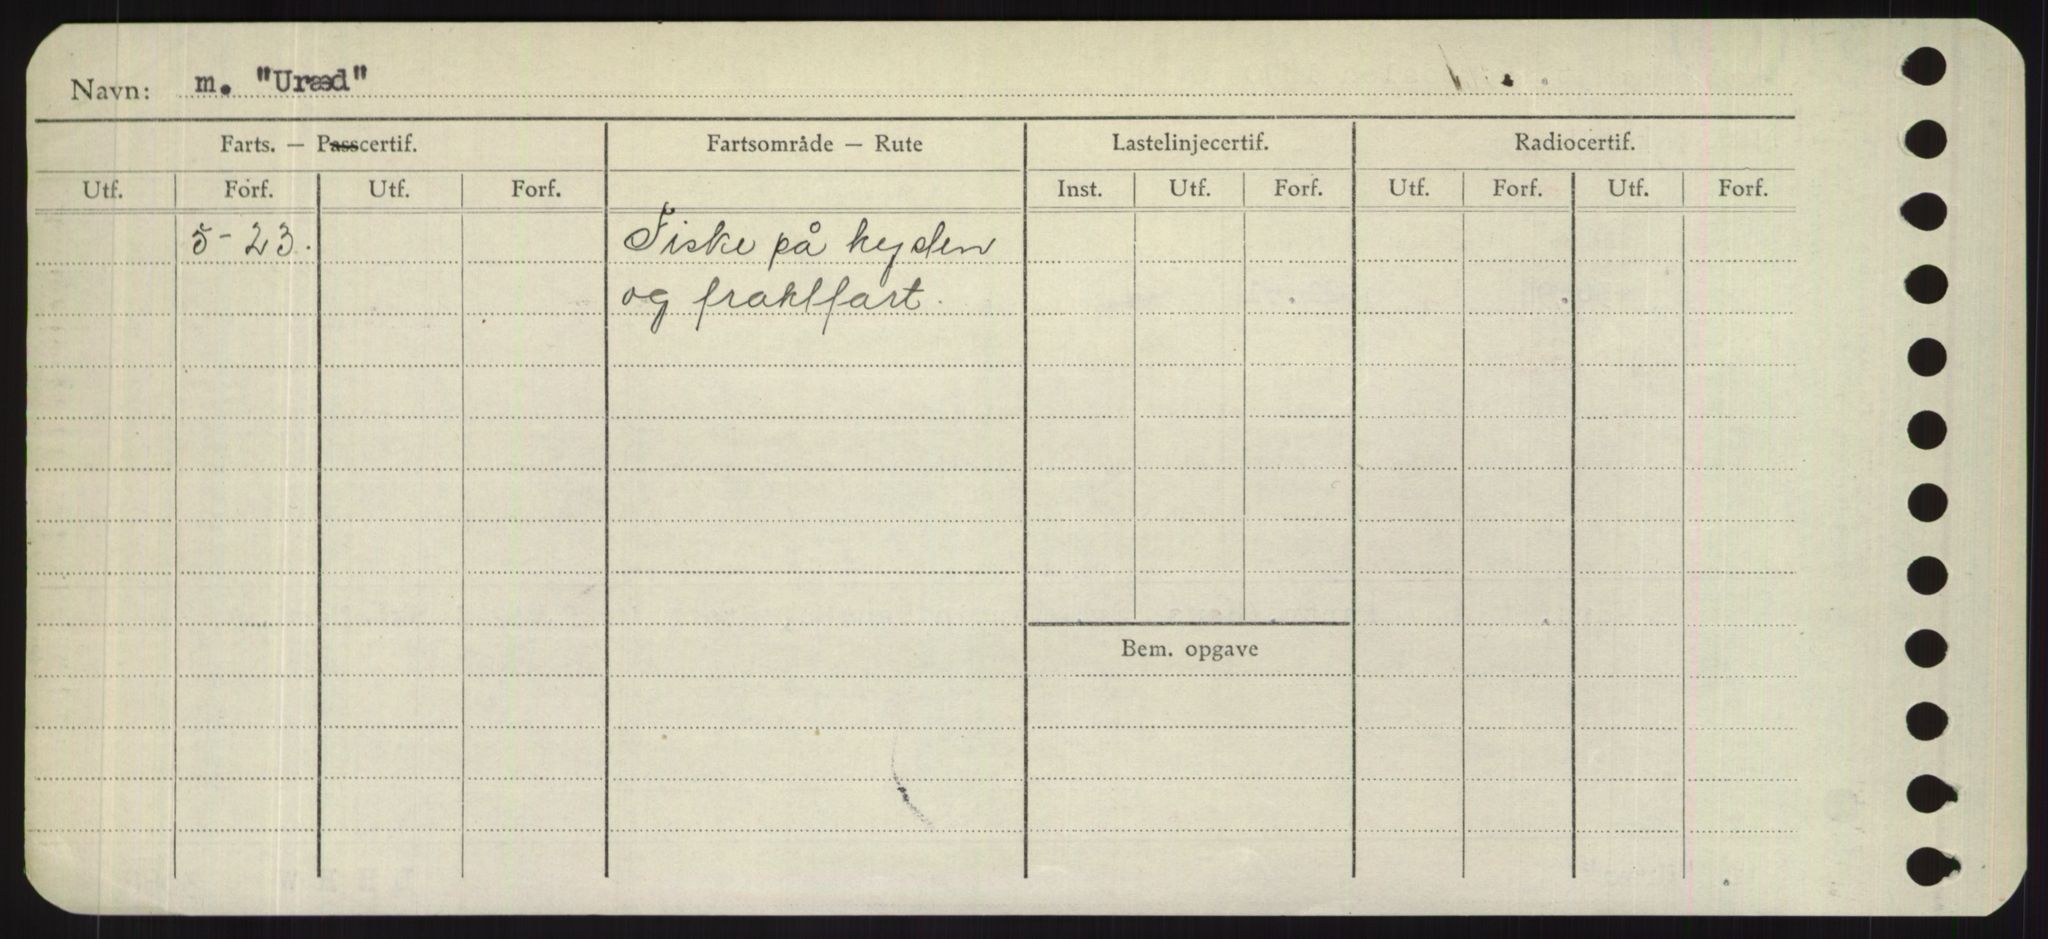 Navn: m. "Uræd"
Farts. — Passcertif. Fartsområde — Rute Lastelinjecertif. Radiocertif.
Utf. Forf. Utf. Forf. Inst. Utf. Forf. Utf. Forf. Utf. Forf.
5-23. Fiske på kysten
og fraktfart.
Bem. opgave